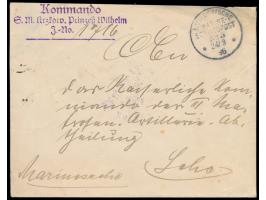 Kommando
S. M. Krzkow. Prinzeß Wilhelm
J.-No. 1716
An
das Kaiserliche Kom-
mando der II Ma-
trosen-Artillerie-Ab-
theilung
Marinesache